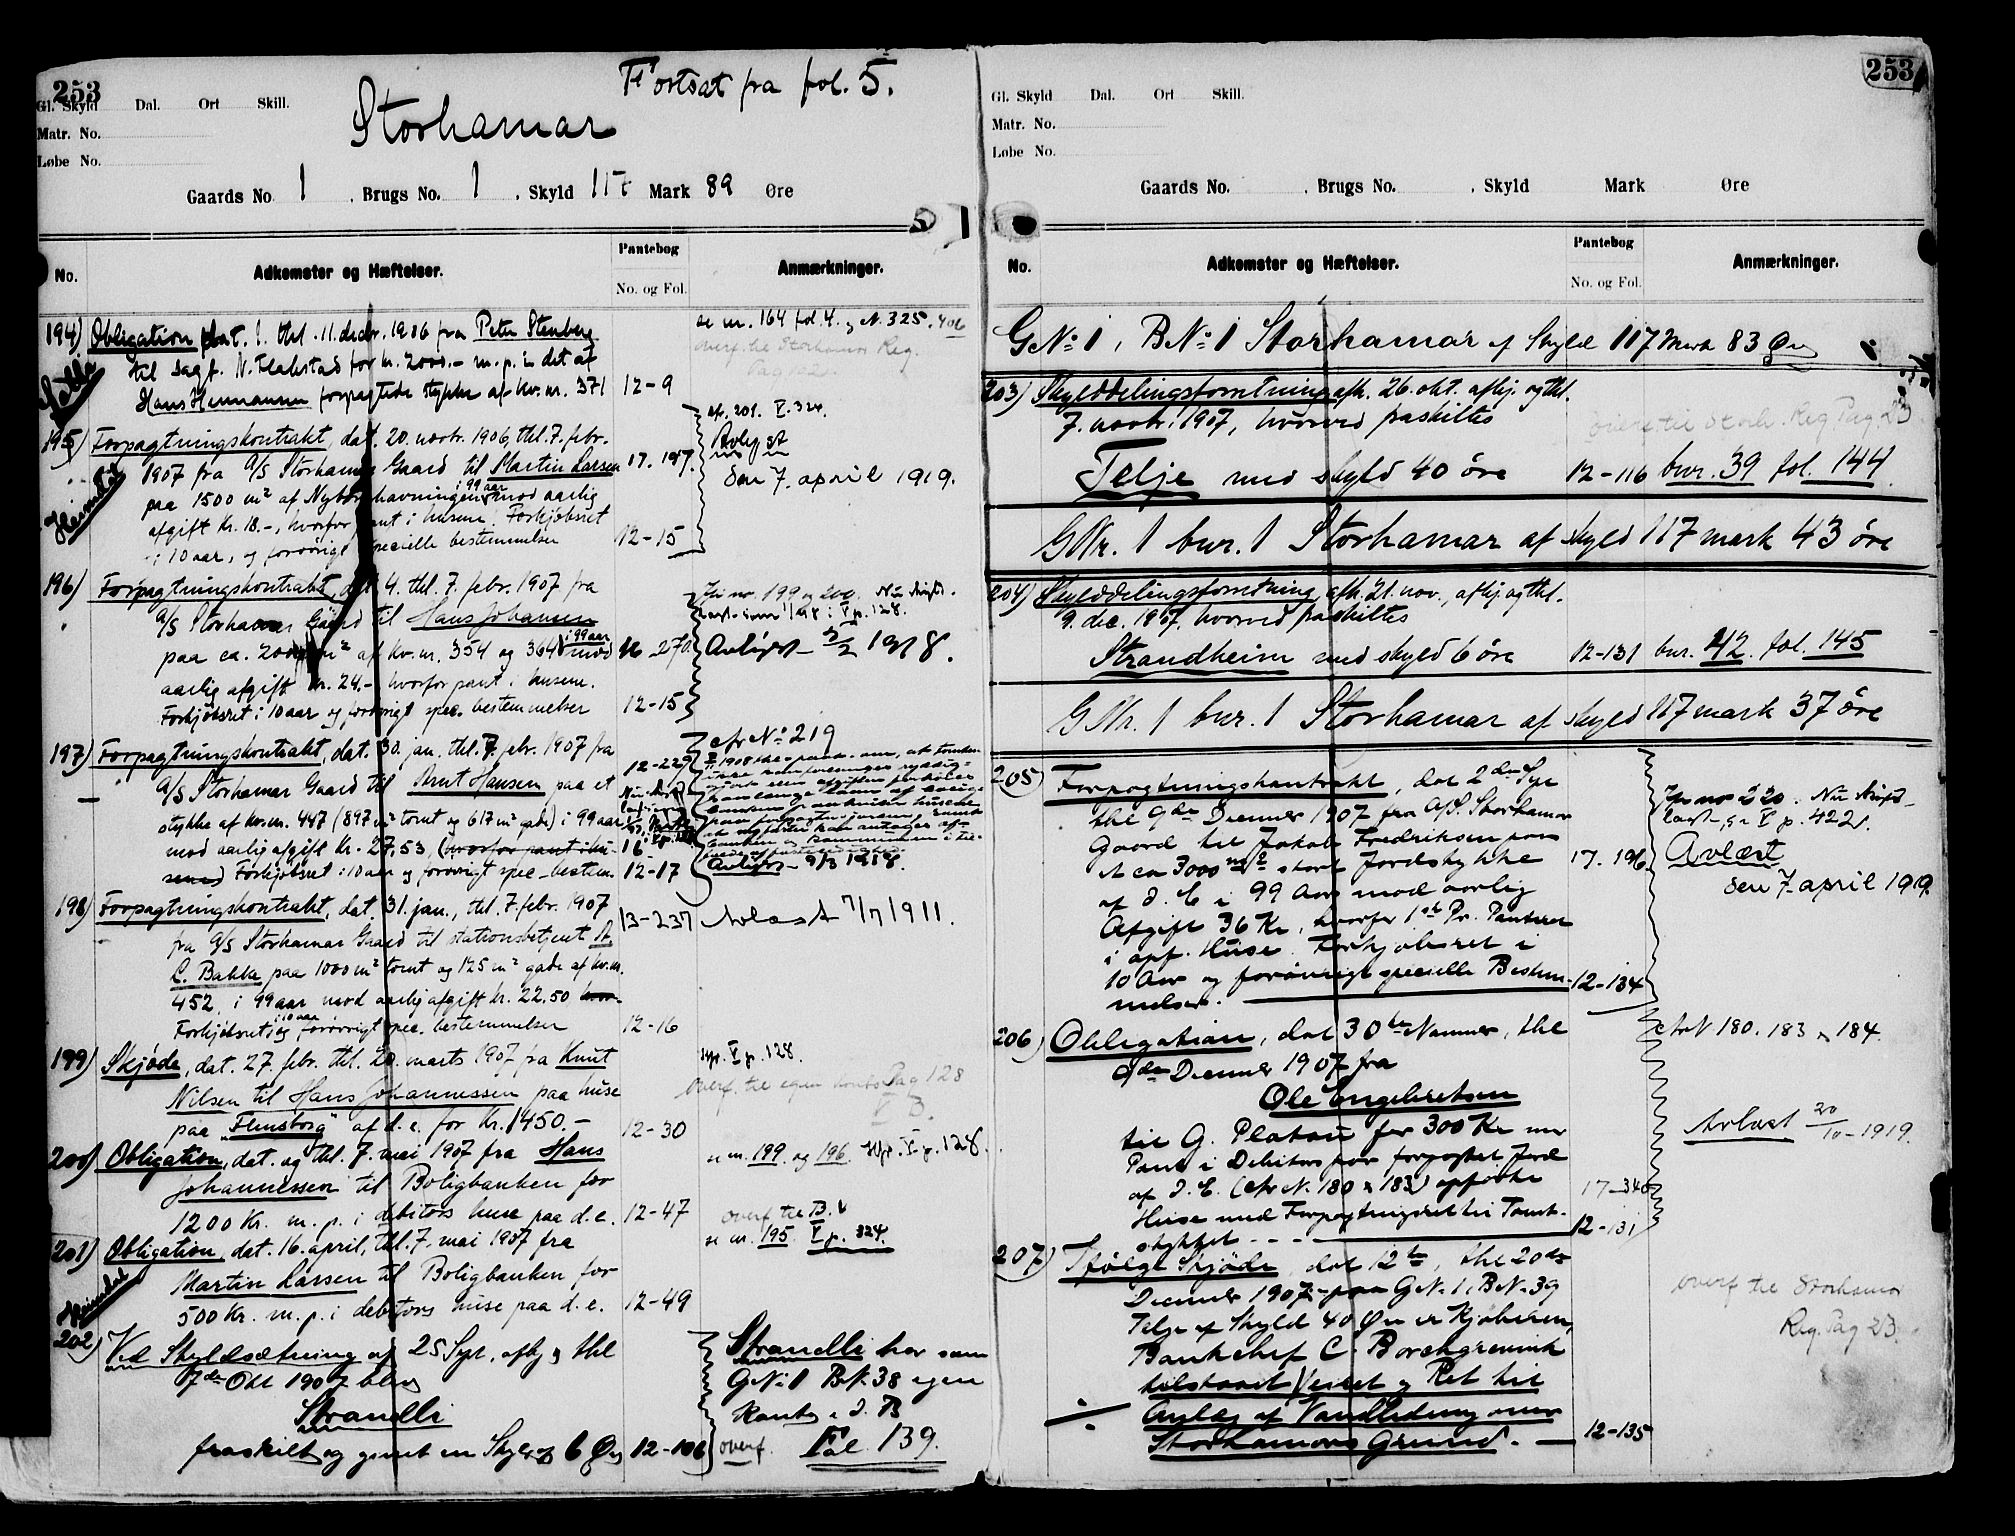 253
Fortsat fra fol. 5.
Gl. Skyld Dal. Ort Skill.
Storhamar
Matr. No.
Løbe No.
Gaards No. 1, Brugs No. 1, Skyld 117 Mark 89 Øre
5
No. Adkomster og Hæftelser. Pantebog No. og Fol. Anmærkninger.
194) Obligation dat. thl. 11. decbr. 1906 fra Peter Stenberg
til sagf. N. Flakstad for kr. 2000.- m. p. i det af
Hans Hermansen forpagtede stykke af kv. nr. 371 12-9
se nr. 164 fol. 4. og N. 325. 406
overf. til Storhamar Reg.
195) Forpagtningskontrakt, dat. 20. novbr. 1906, thl. 7. febr.
1907 fra A/S Storhamar Gaard til Martin Larsen 17. 197.
paa 1500 m² af Nyborghavningen i 99 aar mod aarlig
afgift kr. 18.-, hvorfor pant i husene. Forkjøbsret
i 10 aar, og forøvrigt specielle bestemmelser 12-15
nr. 201. V. 324.
Avlyst
den 7. april 1919.
196) Forpagtningskontrakt, dat. 4. thl. 7. febr. 1907 fra
A/S Storhamar Gaard til Hans Johansen
paa ca. 2000 m² af kv. nr. 354 og 364 i 99 aar mod 16-270.
aarlig afgift kr. 24.- hvorfor pant i husene.
Forkjøbsret i 10 aar og forøvrigt spec. bestemmelser 12-15
Jfr. nr. 199 og 200. Nu
V p. 128.
Avlyst 1918.
197) Forpagtningskontrakt, dat. 30. jan. thl. 7. febr. 1907 fra
A/S Storhamar Gaard til Arnt Hansen paa et 12-229
stykke af kv. nr. 447 (897 m² tomt og 617 m² gade) i 99 aar
mod aarlig afgift kr. 27,53, (hvorfor pant i hu-
sene) Forkjøbsret i 10 aar og forøvrigt spec. bestem. 12-17
cfr No 219
Avlyst 1918.
198) Forpagtningskontrakt, dat. 31. jan., thl. 7. febr. 1907
fra A/S Storhamar Gaard til stationsbetjent A. 13-237
L. Bakke paa 1000 m² tomt og 125 m² gade af kv. nr.
452, i 99 aar mod aarlig afgift kr. 22,50 hvor-
Forkjøbsret i 10 aar og forøvrigt spec. bestemmelser 12-16
Avlæst 7/7 1911.
199) Skjøde, dat. 27. febr. thl. 20. marts 1907 fra Knut
Nilsen til Hans Johannessen paa huse
paa "Flensborg" af d. e. for Kr. 1450.- 12-30
V p. 128.
overf. til egen konto Pag 128
V B.
200) Obligation, dat. og thl. 7. mai 1907 fra Hans
Johannessen til Boligbanken for
1200 Kr. m. p. i debitors huse paa d. e. 12-47
se nr. 199 og 196. V p. 128.
overf til B. V
201) Obligation, dat. 16. april, thl. 7. mai 1907 fra
Martin Larsen til Boligbanken for
500 Kr. m. p. i debitors huse paa d. e. 12-49
se nr. 195. V p. 324.
202) Ved Skyldsætning af 25 Sept. afhj. og thl
7de Okt 1907 blev
Strandli
fraskilt og givet en Skyld af 6 Øre 12-106
Strandli har som
GNo 1 BN. 38 egen
Konto i d. B
overf. Fol 139.
253
Gl. Skyld Dal. Ort Skill.
Matr. No.
Løbe No.
Gaards No. , Brugs No. , Skyld Mark Øre
No. Adkomster og Hæftelser. Pantebog No. og Fol. Anmærkninger.
GNo 1, BNo 1 Storhamar af Skyld 117 Mark 83 Øre
203) Skylddelingsforretning afh. 26. okt. afhj. og thl.
7. novbr. 1907, hvorved fraskiltes
Telje med skyld 40 øre 12-116 bnr. 39 fol. 144
overf til Storh. Reg Pag 23
GNr. 1 bnr. 1 Storhamar af skyld 117 mark 43 øre
204) Skylddelingsforretning, afh. 21. nov., afhj. og thl.
9. dec. 1907, hvorved fraskiltes
Strandheim med skyld 6 øre 12-131 bnr. 42. fol. 145
GNr. 1 bnr. 1 Storhamar af skyld 117 mark 37 øre
205) Forpagtningskontrakt, dat 2den Sept
thl 9de December 1907 fra A/S. Storhamar
Gaard til Jakob Fredriksen paa
et ca 3000 m² stort Jordstykke 17. 196.
af d. E i 99 Aar mod aarlig
Afgift 36 Kr, hvorfor 1ste Pr. Panteret
i opf. Huse. Forkjøbsret i
10 Aar og forøvrigt specielle Bestem- 12-134
melser.
Jfr nr 220. Nu
V p. 422.
Avlæst
den 7. april 1919.
206) Obligation, dat 30te November, thl
9de December 1907 fra
Ole Engebretsen
til G. Platou for 300 Kr med
Pant i Debitors paa forpagtet Jord
af d. E. (cfr N. 180 & 183) opførte 17-340
Huse med Forpagtningsret til Tomt-
stykket 12-131
cfr N 180. 183 & 184.
Avlæst 20/10-1919.
207) Ifølge Skjøde, dat 12te, thl 20de
December 1907 paa GN. 1, BN. 39
Telje af Skyld 40 Øre er Kjøberen,
Bankchef C. Borchgrevink
tilstaaet Veiret og Ret til
Anlæg af Vandledning over
Storhamars Grund. 12-135
overf til Storhamar
Reg. Pag 23.